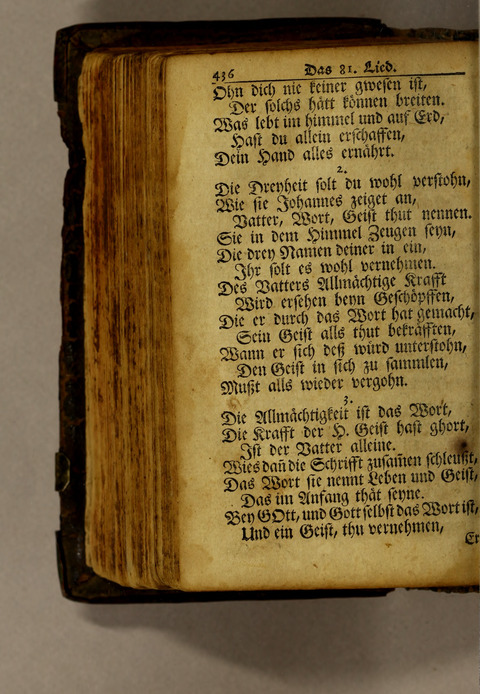 436 Das 81. Lied.
Ohn dich nie keiner gwesen ist,
Der solchs hätt können breiten.
Was lebt im himmel und auf Erd,
Hast du allein erschaffen,
Dein Hand alles ernährt.
2.
Die Dreyheit solt du wohl verstohn,
Wie sie Johannes zeiget an,
Vatter, Wort, Geist thut nennen.
Sie in dem Himmel Zeugen seyn,
Die drey Namen deiner in ein,
Ihr solt es wohl vernehmen.
Des Vatters Allmächtige Krafft
Wird ersehen beyn Geschöpffen,
Die er durch das Wort hat gemacht,
Sein Geist alls thut bekräfften,
Wann er sich deß würd unterstohn,
Den Geist in sich zu sammlen,
Mußt alls wieder vergohn.
3.
Die Allmächtigkeit ist das Wort,
Die Krafft der H. Geist hast ghort,
Ist der Vatter alleine.
Wies dañ die Schrifft zusam̃en schleußt,
Das Wort sie nennt Leben und Geist,
Das im Anfang thät seyne.
Bey GOtt, und Gott selbst das Wort ist,
Und ein Geist, thu vernehmen,
Er